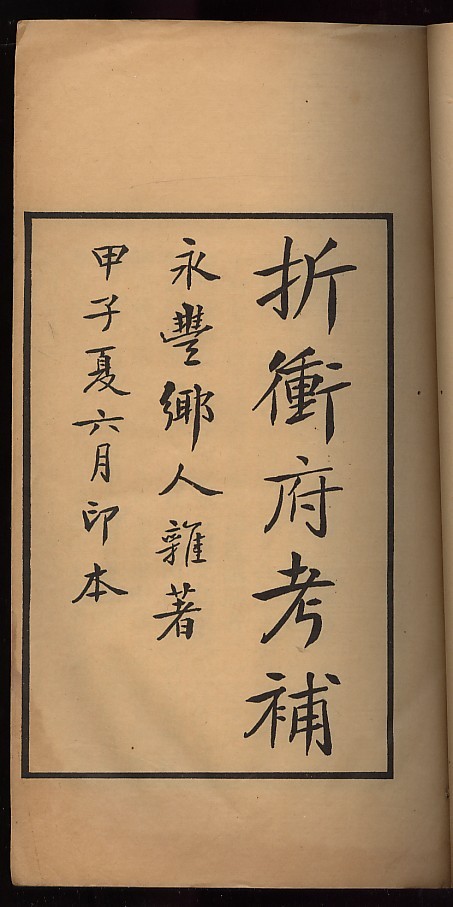 折衝府考補
永豐鄉人雜著
甲子夏六月印本